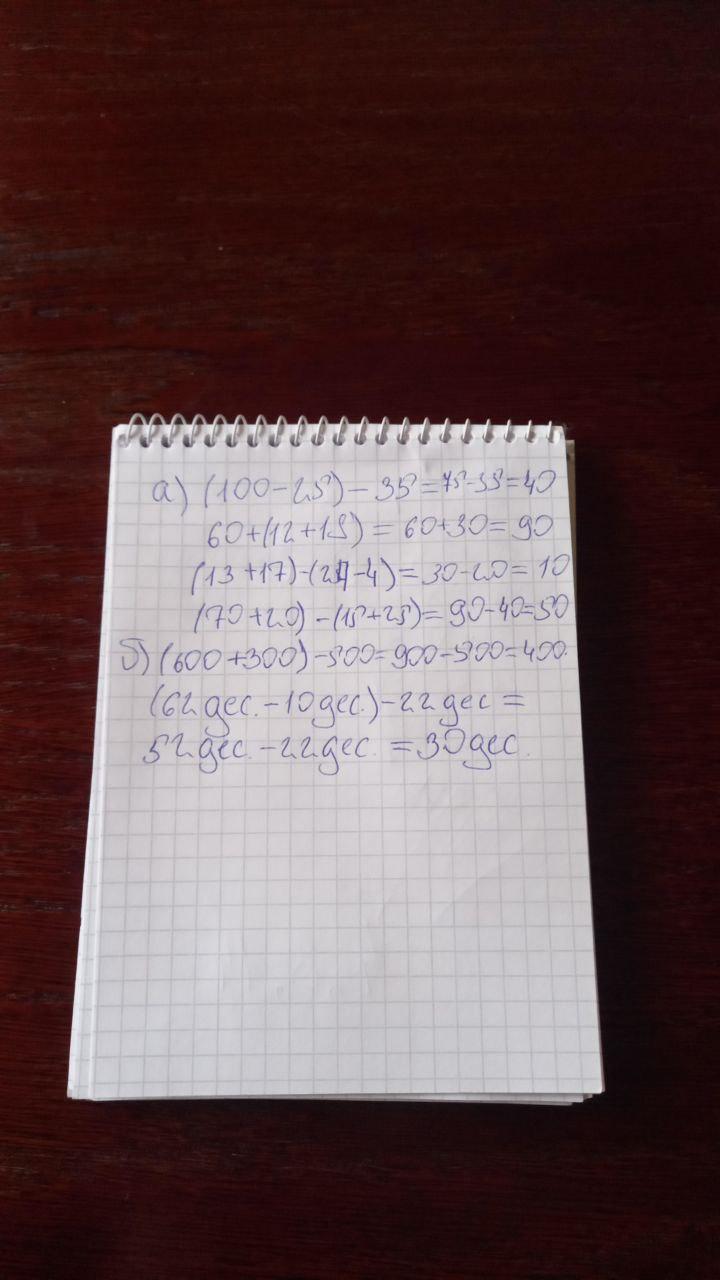 а) (100-25)-35=75-35=40
60+(12+18)=60+30=90
(13+17)-(24-4)=30-20=10
(70+20)-(15+25)=90-40=50
б) (600+300)-500=900-500=400.
(62 дес.-10 дес.)-22 дес=
52 дес.-22 дес.=30 дес.